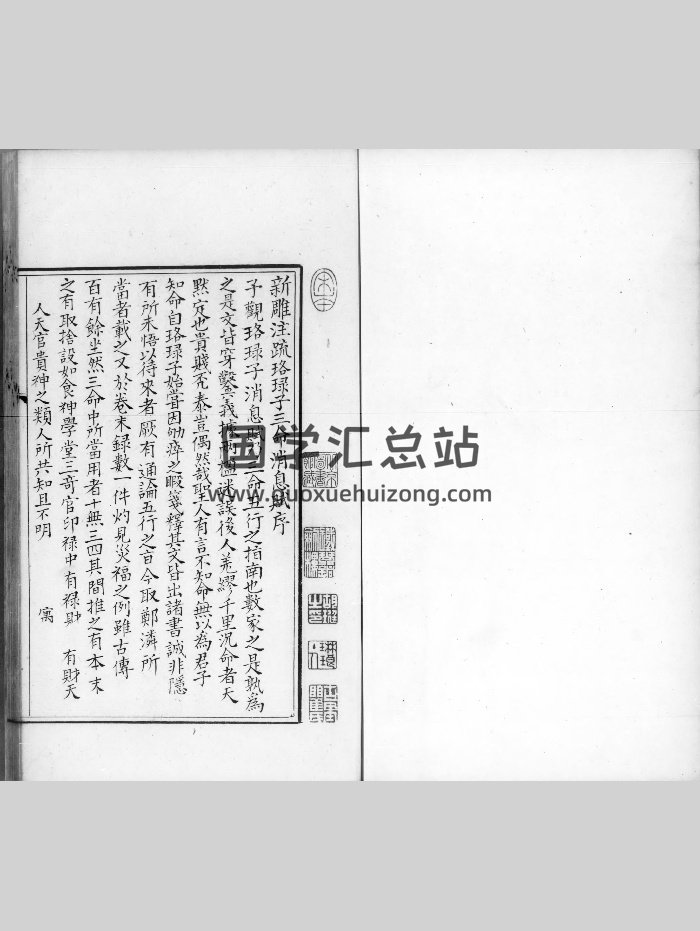 新雕注疏珞琭子三命消息賦序
予觀珞琭子消息賦三命五行之指南也數家之是孰為
之是文皆穿鑿其義據迷誤後人荒繆千里況命者天
黙定也貴賤否泰豈偶然哉聖人有言不知命無以為君子
知命自珞琭子始甞因劬瘁之暇箋釋其文皆出諸書誠非隱
有所未悟以待來者厥有通論五行之旨今取鄭潾所
當者載之又於卷末録數一件灼見災福之例雖古傳
百有餘坐然三命中所當用者十無三四其間推之有本末
之有取捨設如食神學堂三竒官印禄中有禄財 有財天
人天官貴神之類人所共知且不明 寓
国学汇总站
www.guoxuehuizong.com